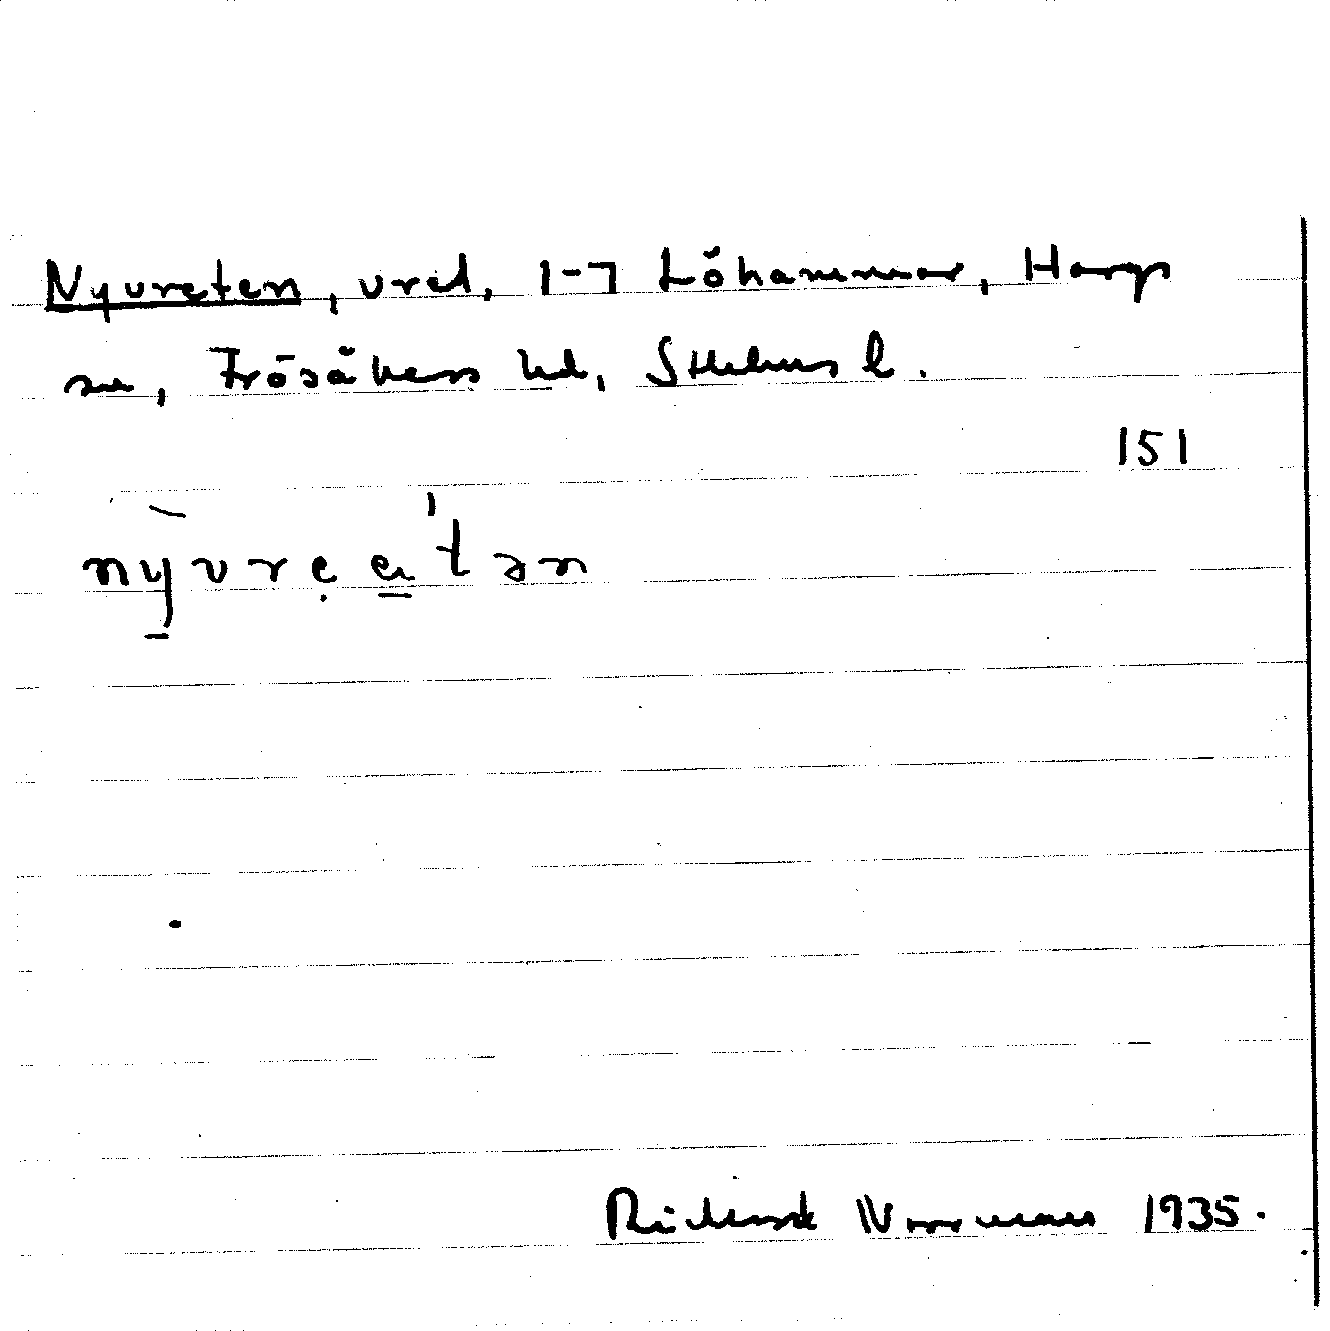 Nyvreten, vret, 1-7 Löhammar, Hargs
sn, Frösåkers hd, Sthlms l.
151
nyvreetən
Rickard Norrman 1935.